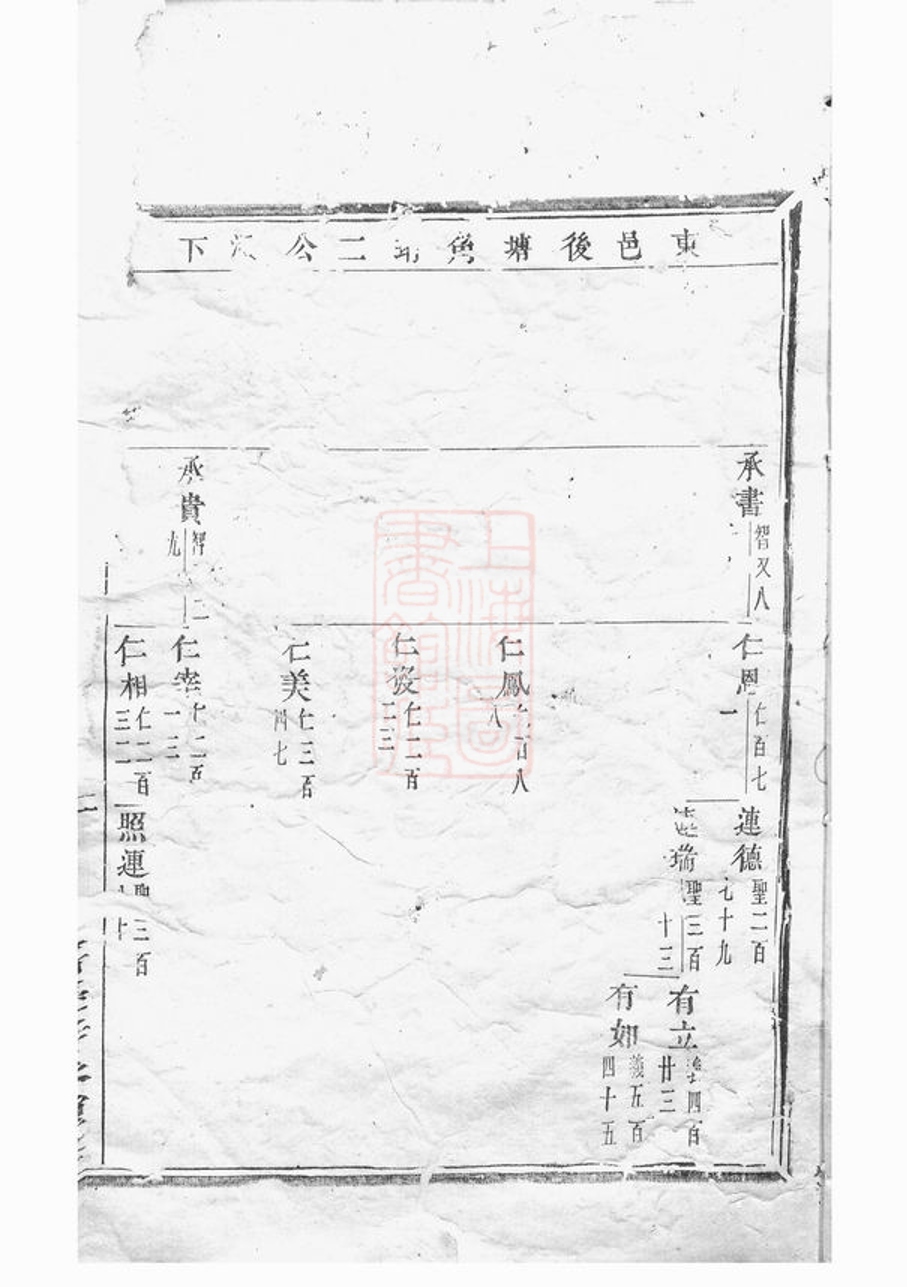 東邑後塘角二公下
承書 智又八
仁恩 仁百七一
蓮德 聖二百七十九
瑞 聖三百十三
有立 義四百廿三
有如 義五百四十五
仁鳳 百八八
仁發 仁二百二三
仁美 仁三百四七
承貴 智二九
仁宰 仁二百一三
仁相 仁二百三二
照運 聖三百十
上海圖書館藏